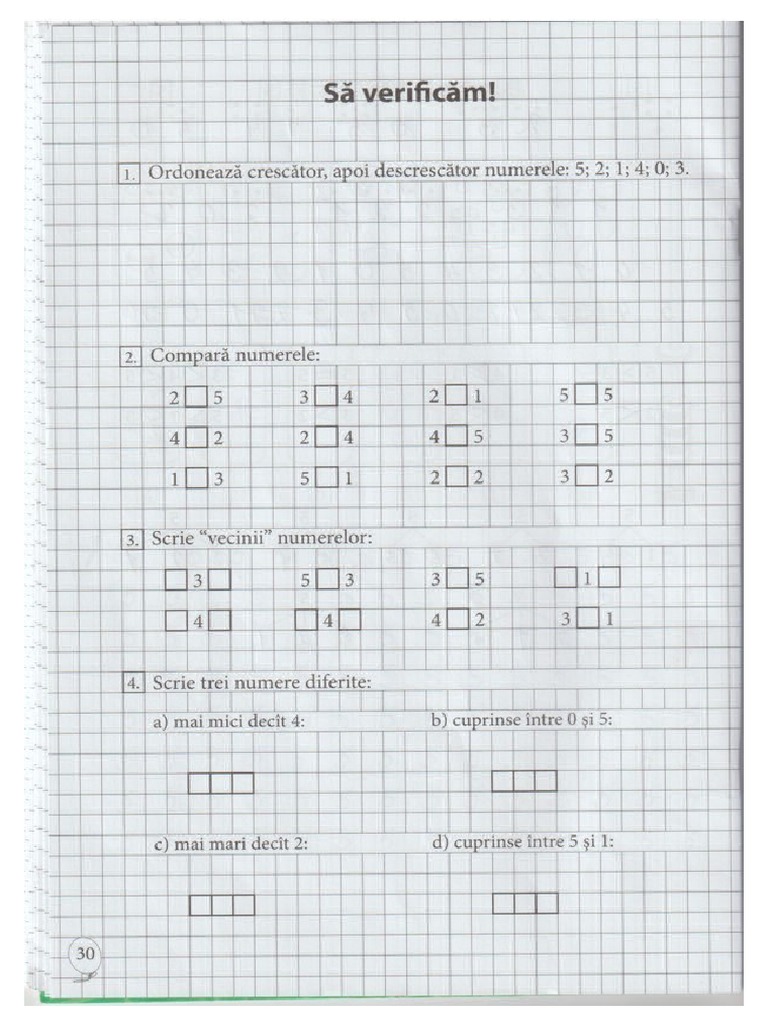 Să verificăm!
1. Ordonează crescător, apoi descrescător numerele: 5; 2; 1; 4; 0; 3.
2. Compară numerele:
2 □ 5 3 □ 4 2 □ 1 5 □ 5
4 □ 2 2 □ 4 4 □ 5 3 □ 5
1 □ 3 5 □ 1 2 □ 2 3 □ 2
3. Scrie “vecinii” numerelor:
□ 3 □ 5 □ 3 3 □ 5 □ 1 □
□ 4 □ □ 4 □ 4 □ 2 3 □ 1
4. Scrie trei numere diferite:
a) mai mici decît 4: b) cuprinse între 0 și 5:
c) mai mari decît 2: d) cuprinse între 5 și 1:
30